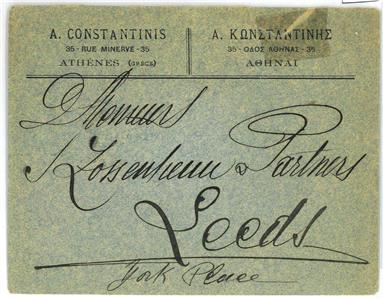 A. CONSTANTINIS
35 - RUE MINERVE - 35
ATHÈNES (GRÈCE)
Α. ΚΩΝΣΤΑΝΤΙΝΗΣ
35 - ΟΔΟΣ ΑΘΗΝΑΣ - 35
ΑΘΗΝΑΙ
Messieurs
Zossenheim & Partners
Leeds
York Place